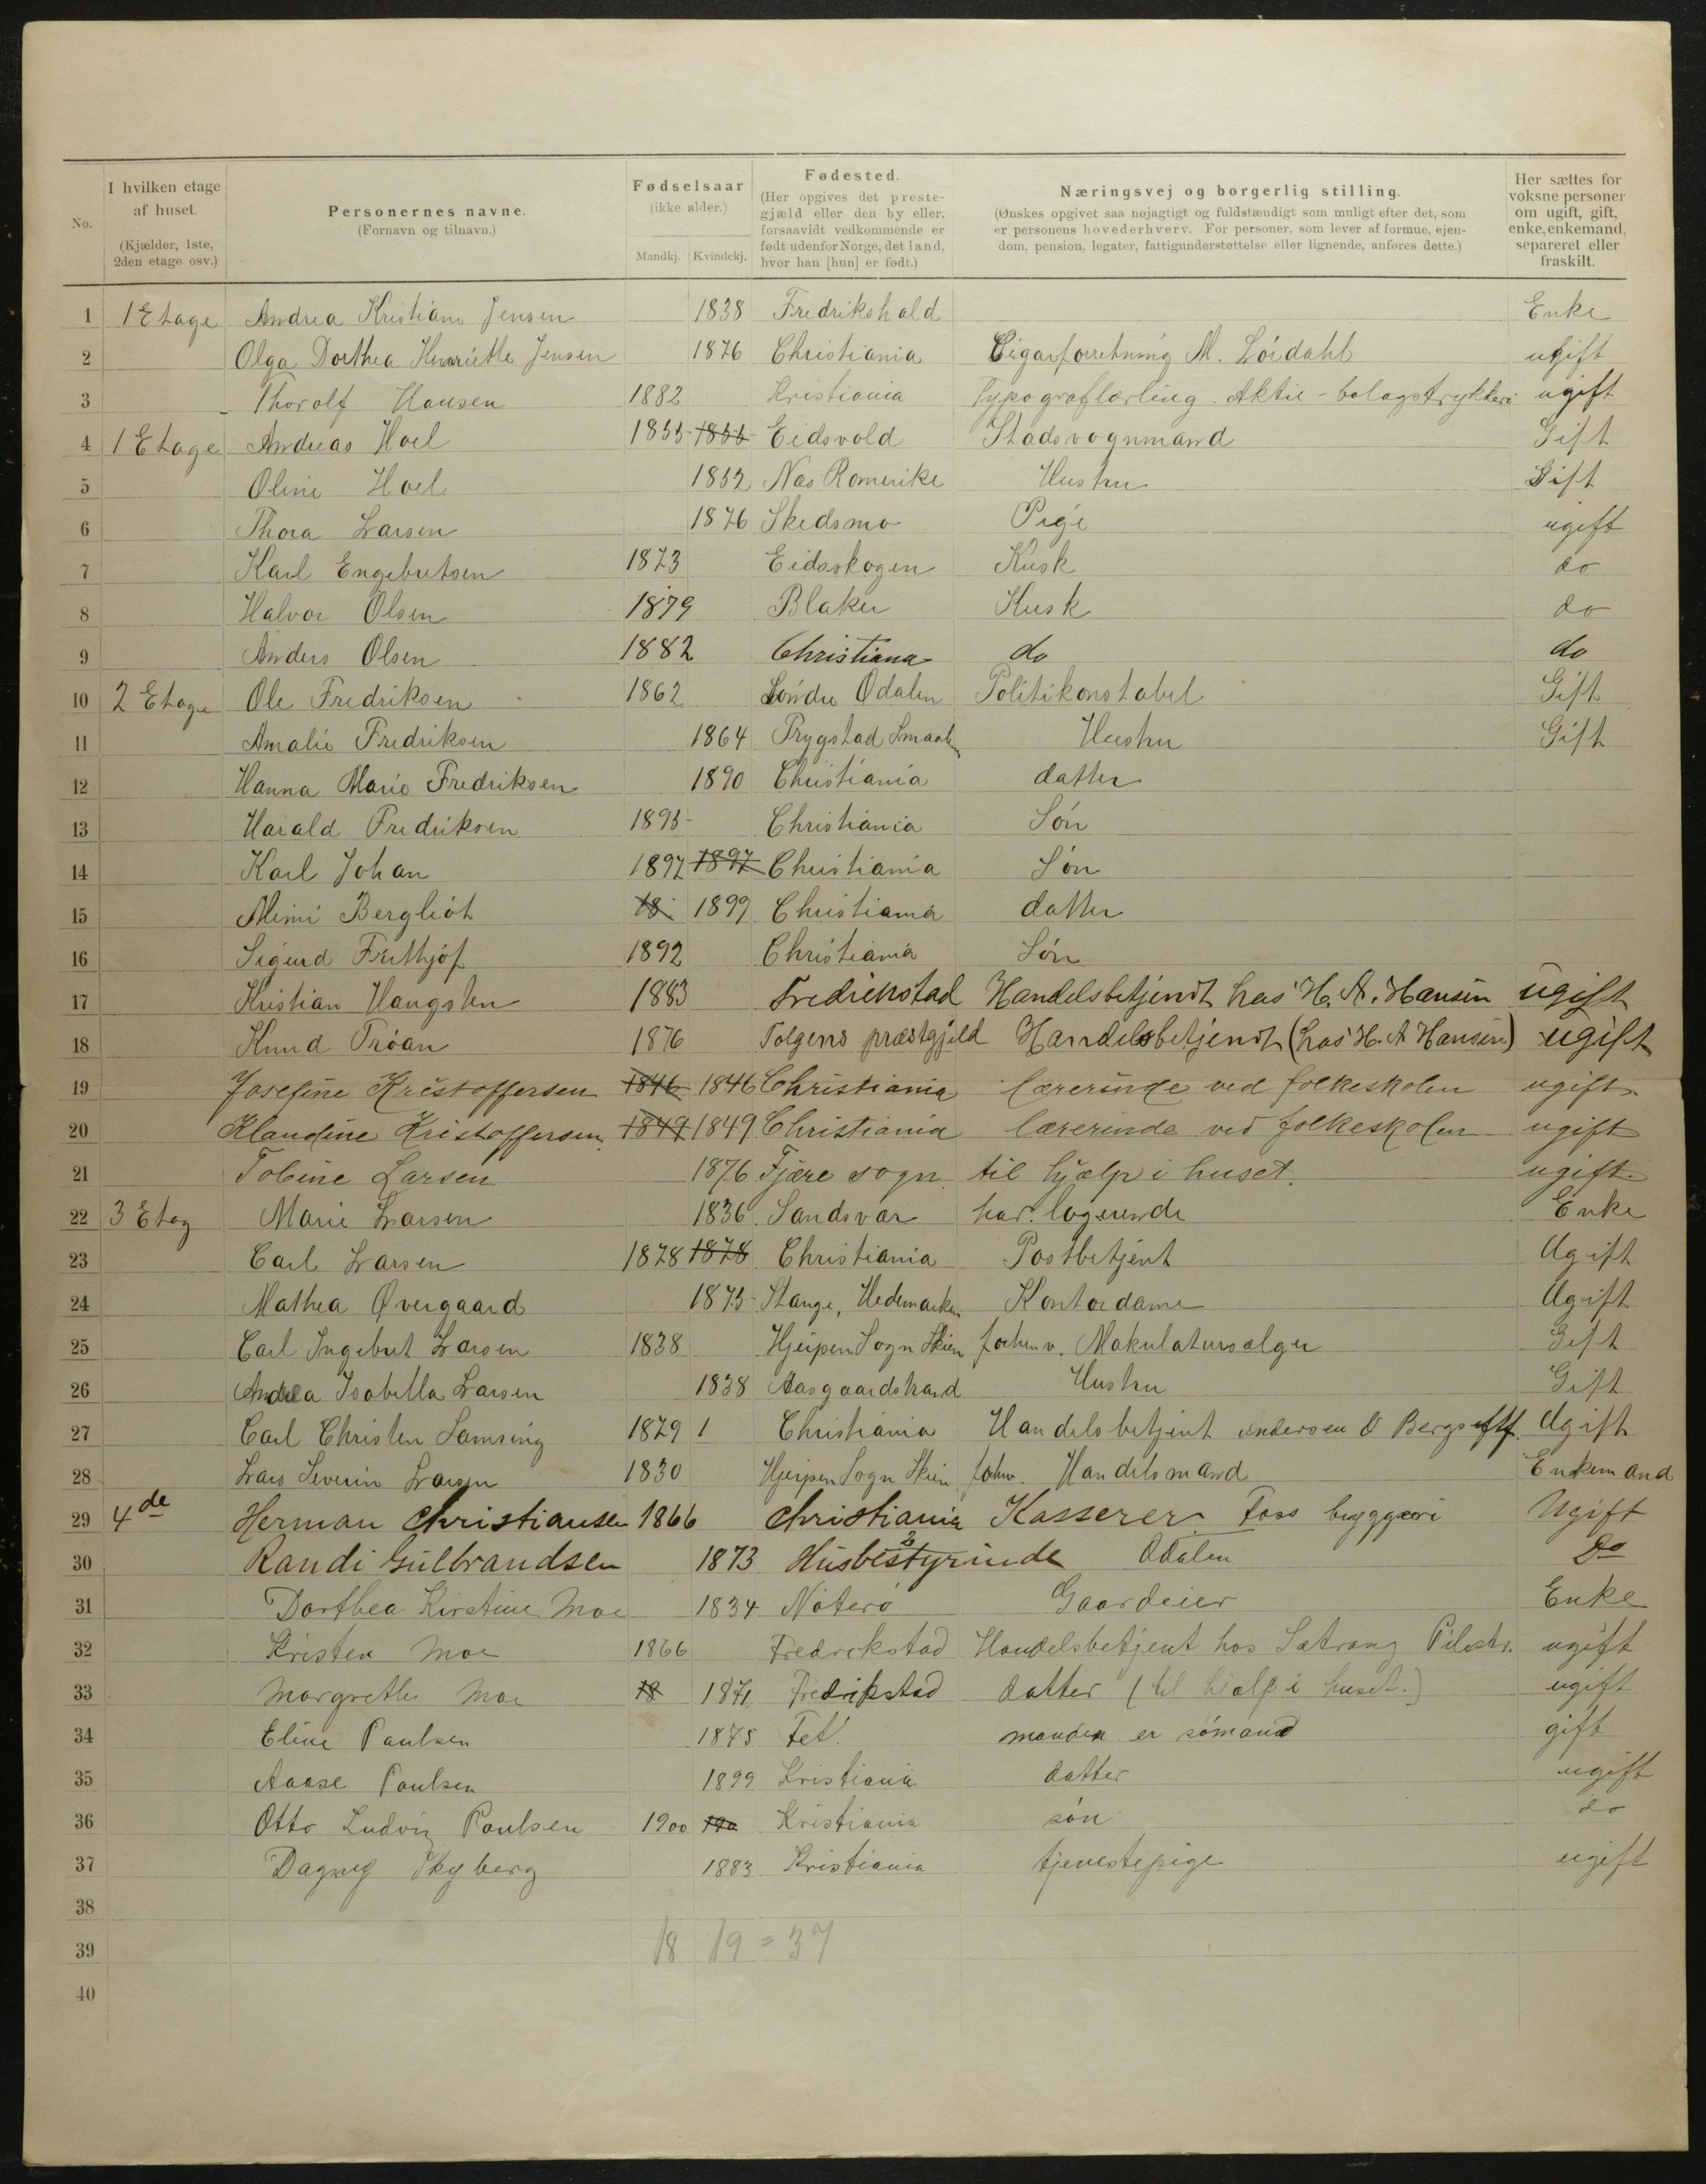 No.
I hvilken etage af huset. (Kjælder, 1ste, 2den etage osv.)
Personernes navne. (Fornavn og tilnavn.)
Fødselsaar (ikke alder.) Mandkj. Kvindekj.
Fødested. (Her opgives det prestegjæld eller den by eller, forsaavidt vedkommende er født udenfor Norge, det land, hvor han [hun] er født.)
Næringsvej og borgerlig stilling. (Ønskes opgivet saa nøjagtigt og fuldstændigt som muligt efter det, som er personens hovederhverv. For personer, som lever af formue, ejendom, pension, legater, fattigunderstøttelse eller lignende, anføres dette.)
Her sættes for voksne personer om ugift, gift, enke, enkemand, separeret eller fraskilt.
1 1 Etage Andrea Kristiane Jensen 1838 Fredrikshald Enke
2 Olga Dorthea Henriette Jensen 1876 Christiania Cigarforretning M. Löidahl ugift
3 Thorolf Hansen 1882 Kristiania Typograflærling Aktie-bolagstrykkeri ugift
4 1 Etage Andreas Hoel 1855 1855 Eidsvold Stadsvognmand Gift
5 Oline Hoel 1852 Nes Romerike Hustru Gift
6 Thora Larsen 1876 Skedsmo Pige ugift
7 Karl Engebretsen 1873 Eidsskogen Kusk do
8 Halvor Olsen 1879 Blaker Kusk do
9 Anders Olsen 1882 Christiana do do
10 2 Etage Ole Fredriksen 1862 Söndre Odalen Politikonstabel Gift
11 Amalie Fredriksen 1864 Trygstad Smaalen Hustru Gift
12 Hanna Marie Fredriksen 1890 Christiania datter
13 Harald Fredriksen 1895 Christiania Sön
14 Karl Johan 1897 1897 Christiania Sön
15 Mimi Bergliot 18 1899 Christiania datter
16 Sigurd Frithjof 1892 Christiania Sön
17 Kristian Haugsten 1883 Fredrikstad Handelsbetjendt hos H. A. Hansen ugift
18 Knud Tröan 1876 Tolgens præstgjeld Handelsbetjendt (hos H. A Hansen) ugift
19 Josefine Kristoffersen 1846 1846 Christiania lærerinde ved folkeskolen ugift
20 Klaudine Kristoffersen 1849 1849 Christiania lærerinde ved folkeskolen ugift
21 Tobine Larsen 1876 Fjære sogn til hjælp i huset. ugift
22 3 Etag Marie Larsen 1836 Sandsvær har logerende Enke
23 Carl Larsen 1878 1878 Christiania Postbetjent Ugift
24 Mathea Øvergaard 1875 Stange, Hedemarken Kontordame Ugift
25 Carl Ingebret Larsen 1838 Hjerpen Sogn Skien forhenv. Makulatursælger Gift
26 Andrea Isabella Larsen 1838 Aasgaardstrand Hustru Gift
27 Carl Christen Samsing 1879 1 Christiania Handelsbetjent Andersen & Bergs eftf. Ugift
28 Lars Severin Larsen 1830 Hjerpen Sogn Skien forhv. Handelsmand Enkemand
29 4de Herman Christiansen 1866 Christiania Kasserer Foss bryggeri Ugift
30 Randi Gulbrandsen 1873 Husbestyrinde Odalen Do
31 Dorthea Kirstine Moe 1834 Nøterø Gaardeier Enke
32 Kristen Moe 1866 Fredrikstad Handelsbetjent hos Sætrang Pilestr. ugift
33 Margrethe Moe 18 1871 Fredrikstad datter (til hjælp i huset.) ugift
34 Eline Paulsen 1875 Fet. manden er sömand gift
35 Aaase Paulsen 1899 Kristiania datter ugift
36 Otto Ludvig Paulsen 1900 190 Kristiania sön do
37 Dagny Skyberg 1883 Kristiania tjenestepige ugift
38
39 18 19 = 37
40